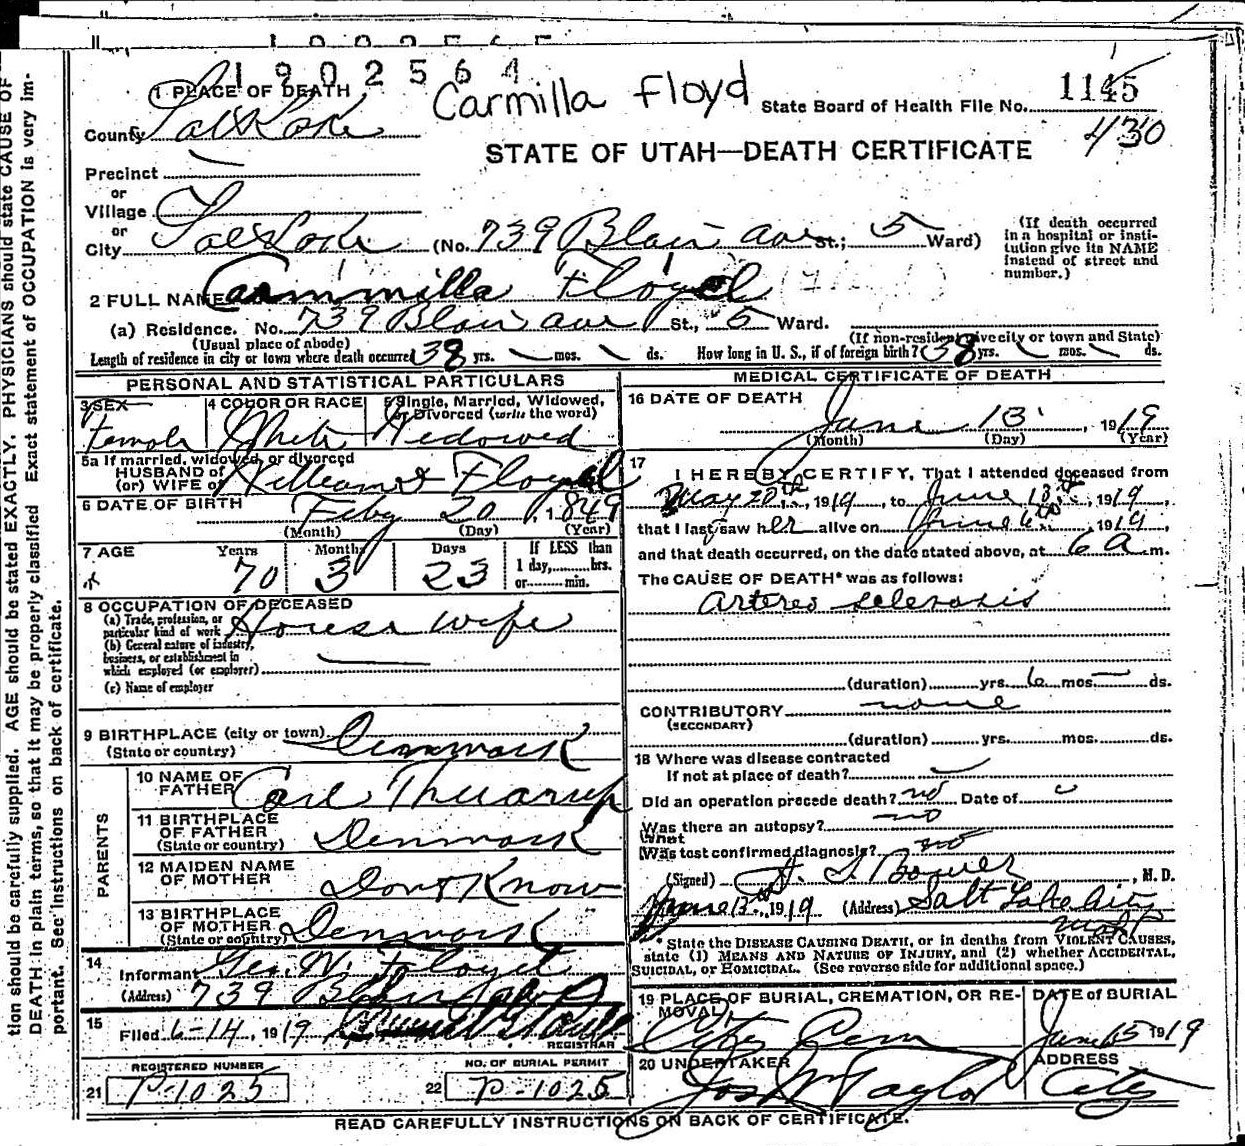 1902564
Carmilla Floyd
State Board of Health File No. 1145
430
1 PLACE OF DEATH
County Salt Lake
STATE OF UTAH—DEATH CERTIFICATE
Precinct
or
Village
or
City Salt Lake (No. 739 Blair ave St.; 5 Ward)
(If death occurred in a hospital or institution give its NAME instead of street and number.)
2 FULL NAME Cammilla Floyd
(a) Residence. No. 739 Blair ave St., 5 Ward.
(Usual place of abode) (If non-resident give city or town and State)
Length of residence in city or town where death occurred 38 yrs. — mos. — ds. How long in U. S., if of foreign birth? 38 yrs. — mos. — ds.
PERSONAL AND STATISTICAL PARTICULARS
3 SEX female
4 COLOR OR RACE White
5 Single, Married, Widowed, or Divorced (write the word) Widowed
5a If married, widowed, or divorced
HUSBAND of
(or) WIFE of William Floyd
6 DATE OF BIRTH Feby 20, 1849
(Month) (Day) (Year)
7 AGE Years Months Days If LESS than
1 day,......hrs.
or......min.
70 3 23
8 OCCUPATION OF DECEASED
(a) Trade, profession, or particular kind of work House wife
(b) General nature of industry, business, or establishment in which employed (or employer)
(c) Name of employer
9 BIRTHPLACE (city or town) Denmark
(State or country)
PARENTS
10 NAME OF FATHER Carl
11 BIRTHPLACE OF FATHER Denmark
(State or country)
12 MAIDEN NAME OF MOTHER Dont Know
13 BIRTHPLACE OF MOTHER Denmark
(State or country)
14
Informant Geo. W. Floyd
(Address) 739 Blair
15
Filed 6-14, 1919
REGISTRAR
REGISTERED NUMBER NO. OF BURIAL PERMIT
21 P-1025 22 P-1025
MEDICAL CERTIFICATE OF DEATH
16 DATE OF DEATH
June 13 1919
(Month) (Day) (Year)
17
I HEREBY CERTIFY, That I attended deceased from
May 20th, 1919, to June 13th, 1919,
that I last saw her alive on June 1919,
and that death occurred, on the date stated above, at 6 a m.
The CAUSE OF DEATH* was as follows:
Arterio sclerosis
(duration) yrs. 6 mos. — ds.
CONTRIBUTORY none
(SECONDARY)
(duration) yrs. mos. ds.
18 Where was disease contracted
If not at place of death?
Did an operation precede death? no Date of
Was there an autopsy? no
What
Was test confirmed diagnosis? no
(Signed) Bower, M. D.
June 13th, 1919 (Address) Salt Lake City
Utah
* State the DISEASE CAUSING DEATH, or in deaths from VIOLENT CAUSES,
state (1) MEANS AND NATURE OF INJURY, and (2) whether ACCIDENTAL,
SUICIDAL, or HOMICIDAL. (See reverse side for additional space.)
19 PLACE OF BURIAL, CREMATION, OR REMOVAL City Cem
DATE of BURIAL June 15 1919
20 UNDERTAKER Jos W Taylor
ADDRESS City
READ CAREFULLY INSTRUCTIONS ON BACK OF CERTIFICATE.
tion should be carefully supplied. AGE should be stated EXACTLY. PHYSICIANS should state CAUSE OF
DEATH in plain terms, so that it may be properly classified. Exact statement of OCCUPATION is very im-
portant. See Instructions on back of certificate.